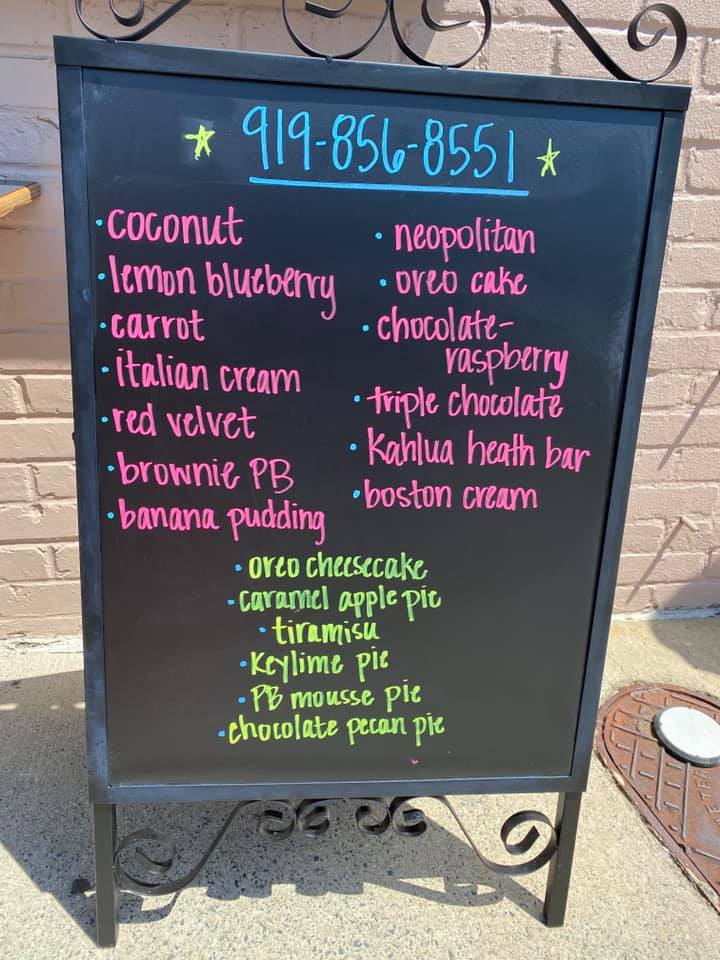 919-856-8551
• coconut
• lemon blueberry
• carrot
• italian cream
• red velvet
• brownie PB
• banana pudding
• neopolitan
• oreo cake
• chocolate-
raspberry
• triple chocolate
• Kahlua heath bar
• boston cream
• oreo cheesecake
• caramel apple pie
• tiramisu
• Keylime pie
• PB mousse pie
• chocolate pecan pie